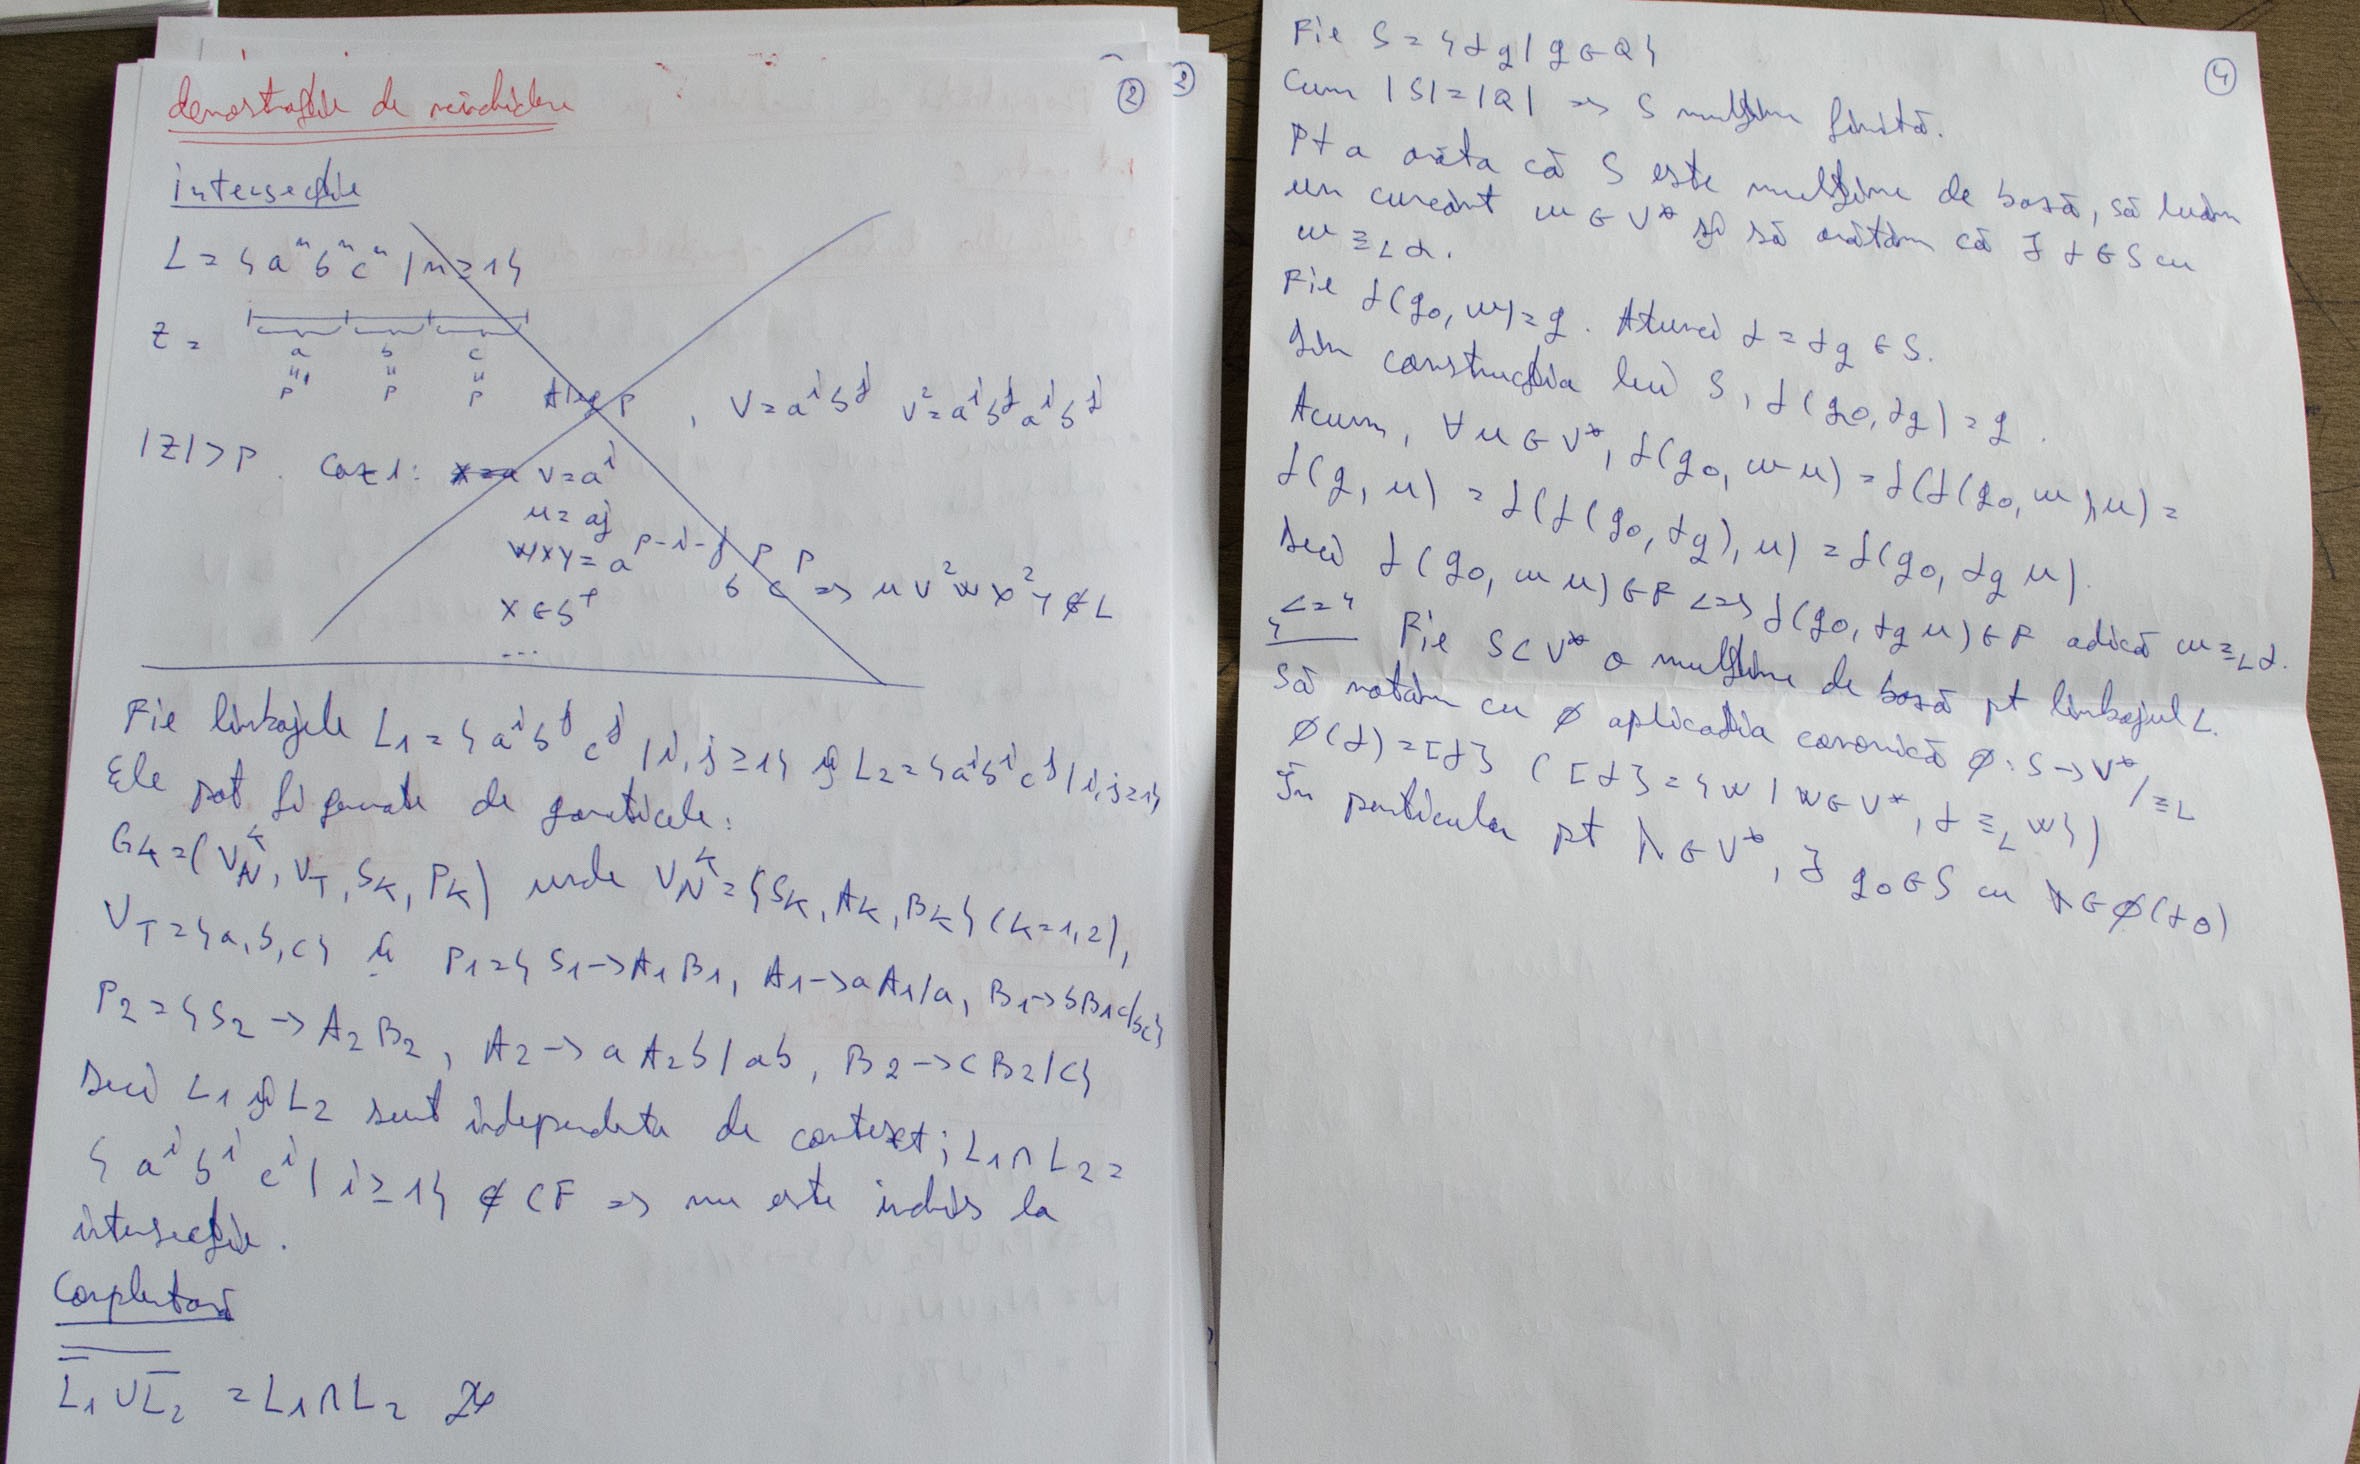 demonstrațiile de neînchidere
②
intersecție
L = {aⁿbⁿcⁿ | n ≥ 1}
z =
a b c
p p p
Aleg p , v = aⁱbʲ v² = aⁱbʲaⁱbʲ
|z| > p . Caz 1: v = aⁱ
u = aj
wxy = a^(p-i-j) b^p c^p => uv²wx²y ∉ L
x ∈ b⁺
...
Fie limbajele L₁ = {aⁱbʲcʲ | i, j ≥ 1} și L₂ = {aⁱbⁱcʲ | i, j ≥ 1}
Ele pot fi generate de gramaticele:
G_K = (V_N^K, V_T, S_K, P_K) unde V_N^K = {S_K, A_K, B_K} (K = 1,2),
V_T = {a, b, c} și P₁ = {S₁ → A₁B₁, A₁ → aA₁/a, B₁ → bB₁c/bc}
P₂ = {S₂ → A₂B₂, A₂ → aA₂b/ab, B₂ → cB₂/c}
Deci L₁ și L₂ sunt independente de context; L₁ ∩ L₂ =
{aⁱbⁱcⁱ | i ≥ 1} ∉ CF => nu este închis la
intersecție.
Complementară
L̅₁ ∪ L̅₂ = L₁ ∩ L₂
②
④
Fie S = {αq | q ∈ Q}
Cum |S| = |Q| => S mulțime finită.
Pt a arăta că S este mulțime de bază, să luăm
un cuvânt w ∈ V* și să arătăm că ∃ α ∈ S cu
w ≡_L α.
Fie δ(q₀, w) = q. Atunci α = αq ∈ S.
Din construcția lui S, δ(q₀, αq) = q.
Acum, ∀ u ∈ V*, δ(q₀, wu) = δ(δ(q₀, w), u) =
δ(q, u) = δ(δ(q₀, αq), u) = δ(q₀, αq u).
Deci δ(q₀, wu) ∈ F <=> δ(q₀, αq u) ∈ F adică w ≡_L α.
"<=" Fie S ⊂ V* o mulțime de bază pt limbajul L.
Să notăm cu ∅ aplicația canonică ∅: S → V*/≡_L
∅(α) = [α] ([α] = {w | w ∈ V*, α ≡_L w})
În particular pt λ ∈ V*, ∃ q₀ ∈ S cu λ ∈ ∅(α₀)